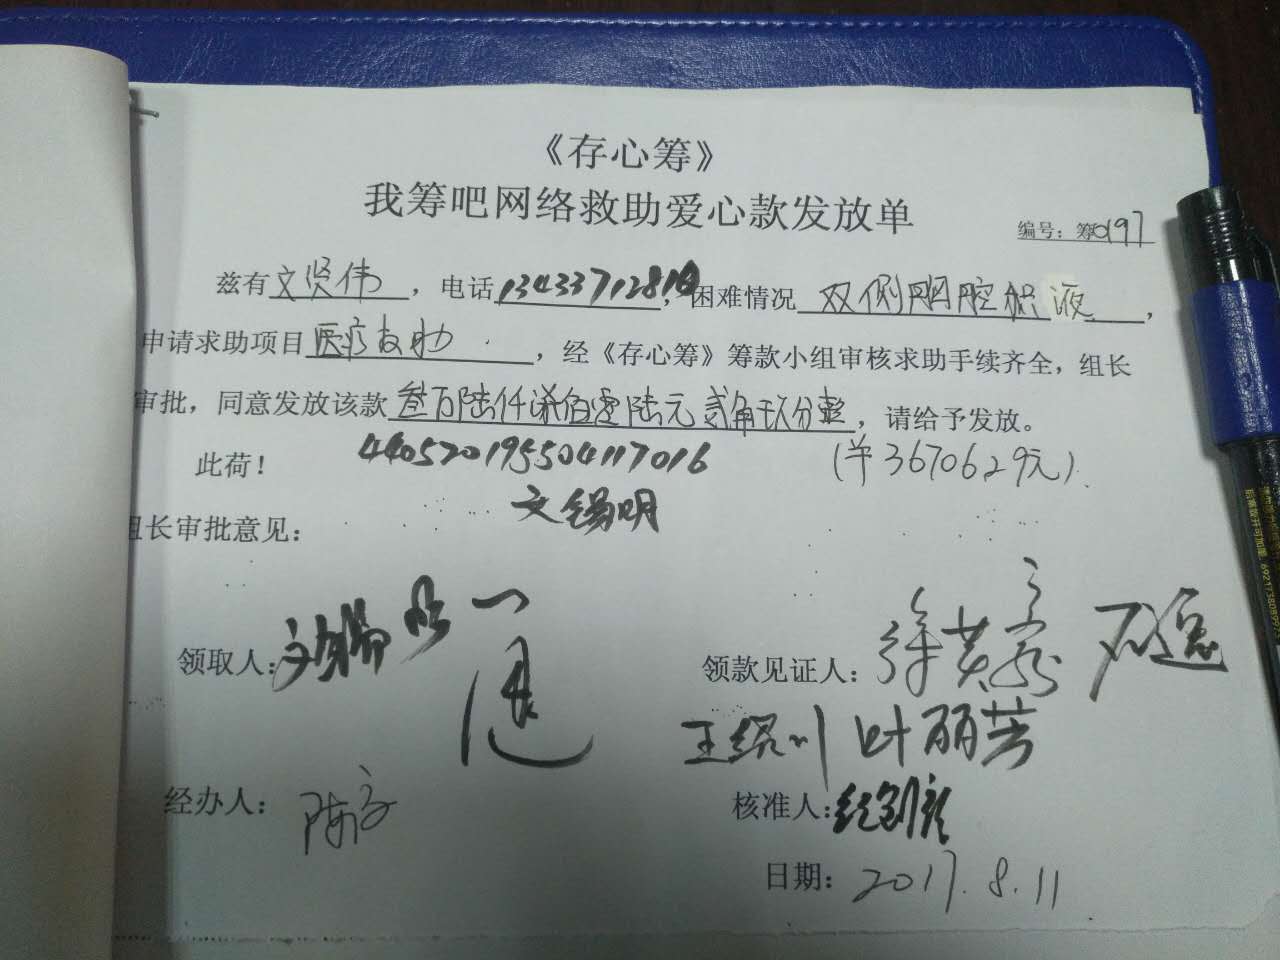 《存心筹》
我筹吧网络救助爱心款发放单
编号：筹0197
兹有文贤伟，电话13433712816，困难情况双侧胸腔积液，
申请求助项目医疗救助，经《存心筹》筹款小组审核求助手续齐全，组长
审批，同意发放该款叁万陆仟柒佰零陆元贰角玖分整，请给予发放。
此荷！ 440520195504117016 （￥36706.29元）
文锡明
组长审批意见：
领取人：文锡明
领款见证人：
叶丽芳
经办人：
核准人：
日期：2017.8.11